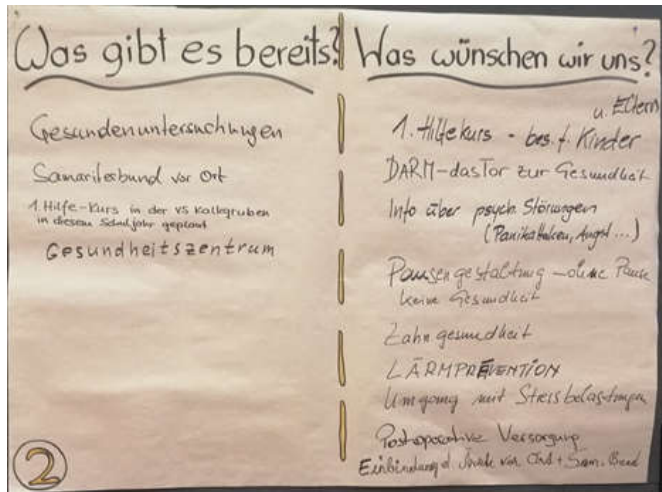 Was gibt es bereits?
Gesundenuntersuchungen
Samariterbund vor Ort
1. Hilfe-Kurs in der VS Kalkgruben
in diesem Schuljahr geplant
Gesundheitszentrum
2
Was wünschen wir uns?
1. Hilfekurs - bes. f. Kinder
u. Eltern
DARM-dasTor zur Gesundheit
Info über psych. Störungen
(Panikattacken, Angst...)
Pausengestaltung - ohne Pause
keine Gesundheit
Zahngesundheit
LÄRMPRÄVENTION
Umgang mit Stressbelastungen
Postoperative Versorgung
Einbindung d. vor Ort + Sam. Bund